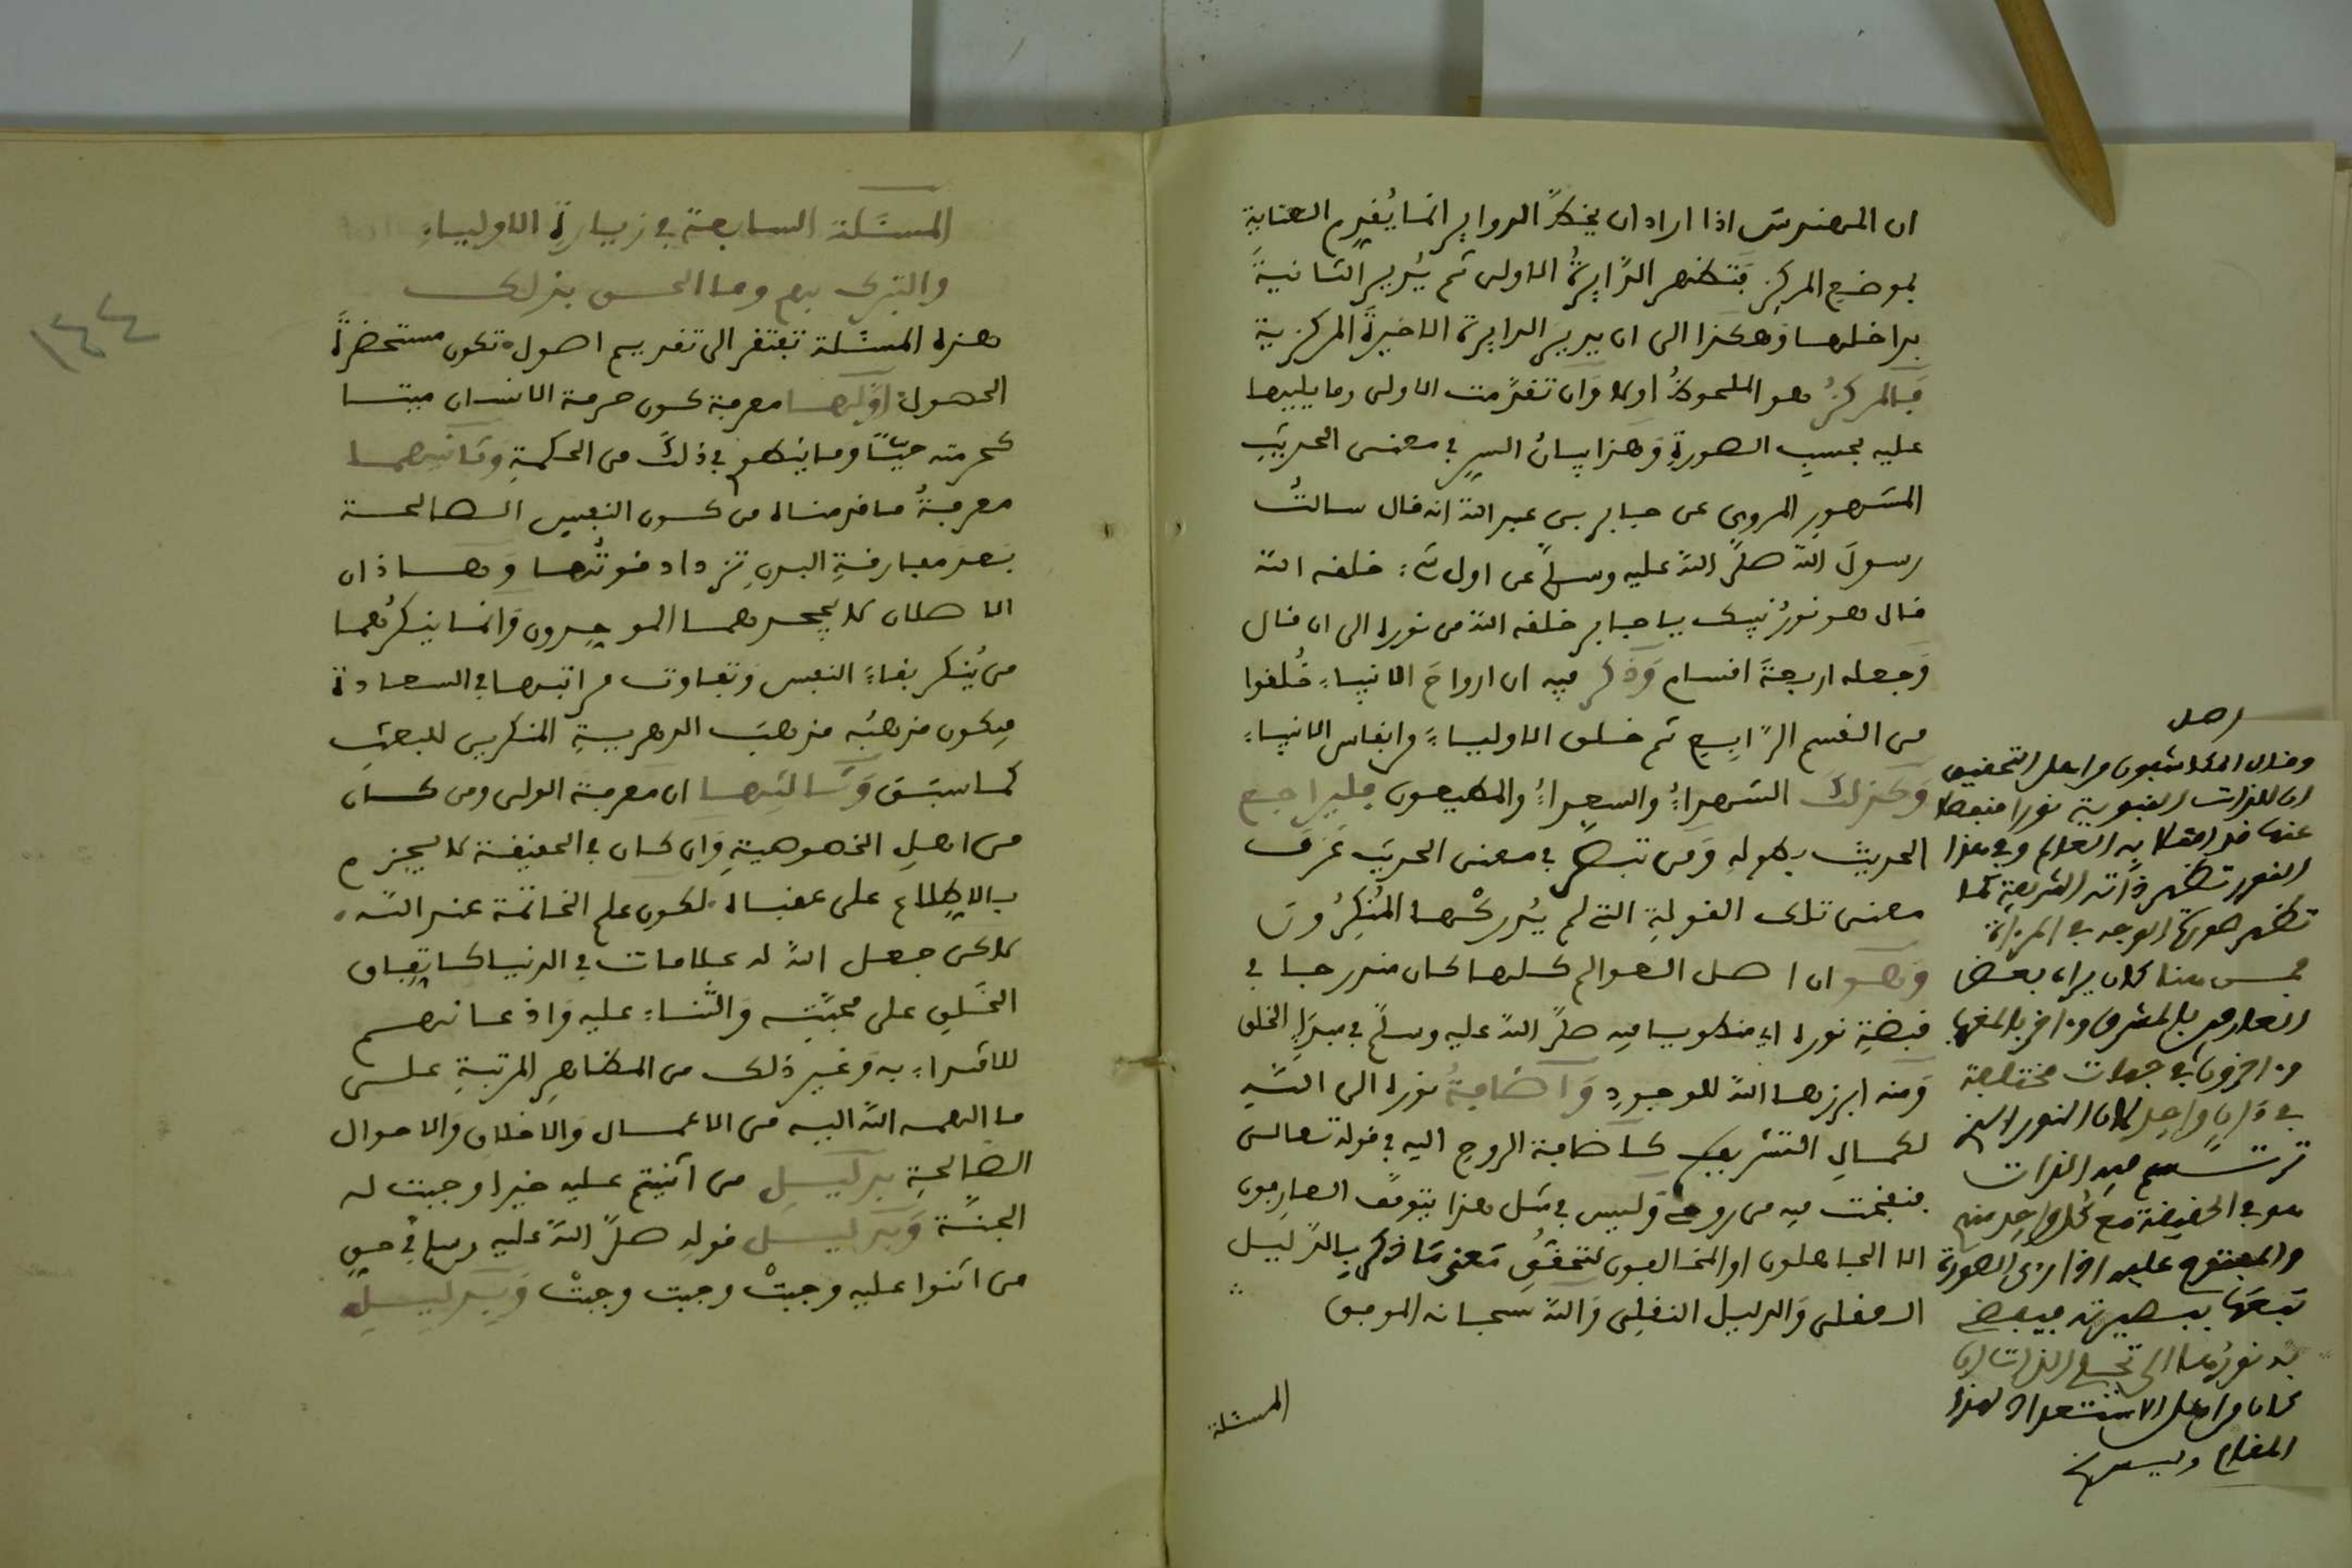 ان المهندس اذا اراد ان يخط الدواير انما يُقدم العناية
بموضع المركز فتظهر الدّايرةُ الاولى ثم يُدير الثانيةَ
بداخلها وهكذا الى ان يدير الدايرة الاخيرةَ المركزية
فالمركزُ هو الملحوظُ اولا وان تقدّمت الاولى وما يليها
عليه بحسب الصورةِ وهذا بيانُ السرِ في معنى الحديثِ
المشهورِ المروي عن جابر بن عبد الله انه قال سالتُ
رسولَ الله صلّى الله عليه وسلّم عن اول شيء خلقه الله
قال هو نورُ نبيك يا جابر خلقه الله من نوره الى ان قال
وجعله اربعةَ اقسام وذكر فيه ان ارواحَ الانبياءِ خُلقوا
من القسم الرّابِعِ ثم خلق الاولياءَ من انفاس الانبياءِ
وكذلك الشهداءُ والسعداءُ والمطيعون فليراجع
الحديث بطوله ومن تبصّر في معنى الحديث عَرَف
معنى تلك القولةِ التي لم يُدركْها المُنكِرُونَ
وهو ان اصل العوالم كلها كان مندرجا في
قبضةِ نوره اي منطويا فيه صلّى الله عليه وسلّم في مبدإِ الخلق
ومنه ابرزها الله للوجودِ واضافةُ نوره الى الله
لكمالِ التشريفِ كاضافة الروحِ اليه في قوله تعالى
فنفخت فيه من روحي وليس في مثل هذا يتوقّف العارفون
الا الجاهلون او المخالفون لتحقق مَعنى مَا ذكر بالدّليل
العقلى والدليل النقلى والله سبحانه الموفق
المسئلة
اصل
وقال المكاشفون من اهل التحقيق
ان للذات النبوية نورا منفصلا
عنها قد امتلا به العالم وفي هذا
النور تظهر ذاته الشريفة كما
تظهر صورة الوجه في المرءاة
فمن هنا كان يراه بعض
العارفين بالمشرق وءاخر بالمغرب
وءاخرون في جهات مختلفة
في ءانٍ واحِدٍ لان النور الذي
ترتسم فيه الذات
هو في الحقيقة مع كلِّ واحِدٍ منهم
والمفتوح عليه اذا راى الصورة
تبعها ببصيرته فيفضى
به نورُها الى تجلى الذات ان
كان من اهل الاستعداد لهذا
المقام
المسئلة السابعة في زيارة الاولياءِ
والتبرك بهم وما الحق بذلك
هذه المسئلة تفتقر الى تقديم اصول تكون مستحضرةً
الحصول اوّلها معرفة كون حرمة الانسان ميتا
كحرمته حيّا وما ينطو في ذلك من الحكمةِ وثانيهما
معرفةُ ما قدمناه من كون النفس الصالحة
بعد مفارقةِ البدنِ تزداد قوتُها وهاذان
الاصلان لا يجحدهما الموحدون وانما ينكرُهما
من يُنكر بقاءَ النفس وتفاوت مراتبها في السعادة
فيكون مذهبُه مذهبَ الدهريةِ المنكرين للبعثِ
كما سبَق وثالثها ان معرفة الولى ومن كان
من اهلِ الخصوصيةِ وان كان في الحقيقة لا يجزم
بالاطلاع على عقباه لكون علم الخاتمة عند الله
لاكن جعل الله له علامات في الدنيا كاتفاق
الخَلقِ على محبتِه والثناءِ عليه واذعانهم
للاقتداءِ به وغير ذلك من المظاهرِ المرتبةِ على
ما الهمه اللهُ اليه من الاعمال والاخلاق والاحوال
الصالحةِ بدليلِ من اثنيتم عليه خيرا وجبت له
الجنّة وبدليل قولِه صلّى الله عليه وسلم في حقِ
من اثنوا عليه وجبتْ وجبت وجبتْ وبدليلِ
١٤٤